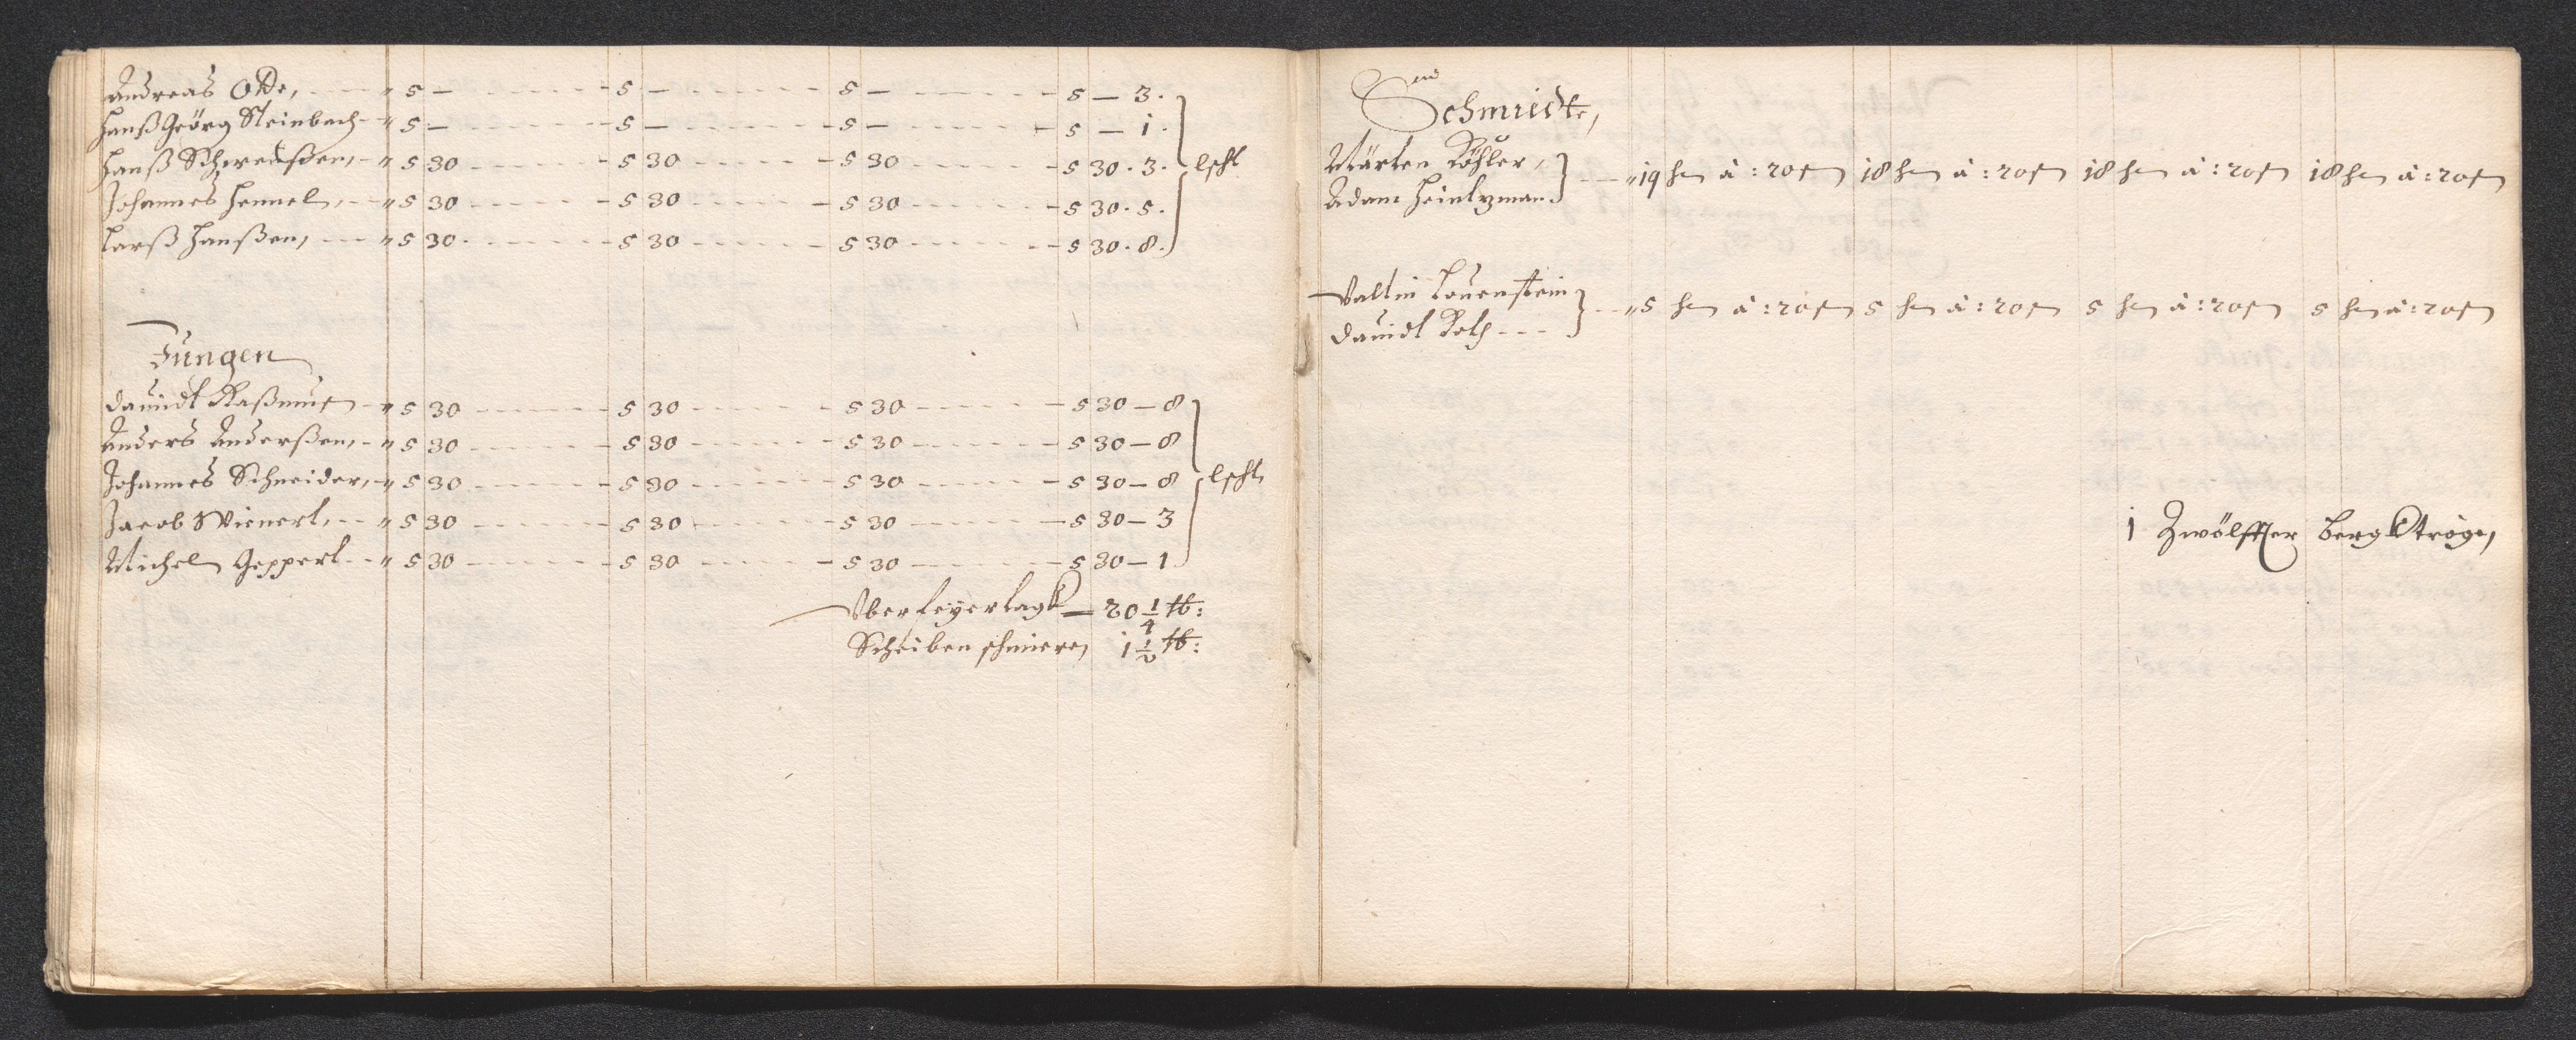 Andreas Otte, „ 5 — 5 — 5 — 5 — 3.
Hanß Geörg Steinbach „ 5 — 5 — 5 — 5 — 1.
Hanß „ 5 30 5 30 5 30 5 30 . 3.
Johannes Hennel, „ 5 30 5 30 5 30 5 30 . 5.
Larß Hanßen, „ 5 30 5 30 5 30 5 30 . 8.
lscht
Jungen
Dauidt Raßmus „ 5 30 5 30 5 30 5 30 — 8
Anders Anderßen, „ 5 30 5 30 5 30 5 30 — 8
Johannes Schneider, „ 5 30 5 30 5 30 5 30 — 8
Jacob Wienert, „ 5 30 5 30 5 30 5 30 — 3
Michel Geppert „ 5 30 5 30 5 30 5 30 — 1
lscht
Vber feyertagk — 20 1/4 ℔:
Scheiben schmiere, 1 1/2 ℔:
Schmiedte,
Märten Köhler,
Adam Heintzman „ 19 à : 20 18 à : 20 18 à : 20 18 à : 20
Valtin Louenstein
Dauidt Roth „ 5 à : 20 5 à : 20 5 à : 20 5 à : 20
1 Zwölffer Bergktröge,